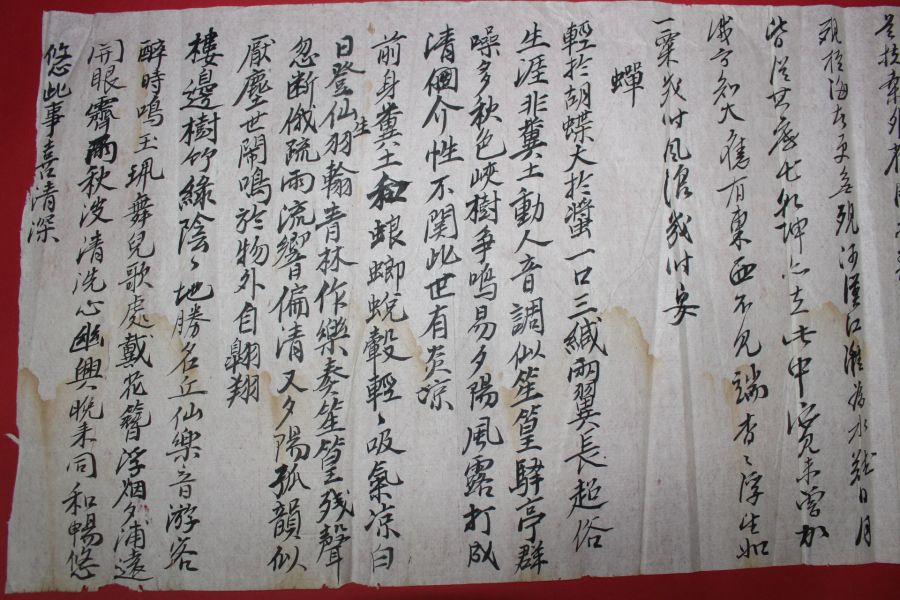 觀於海者更無觀河漢江淮為水難日月
皆從其底出乾坤上立此中寬未曾
知大舊有東西不見端杳杳浮生如
一粟幾付風浪幾付安
蟬
輕於胡蝶大於蜚一口三緘兩翼長超俗
生涯非糞土動人音調似笙篁驛亭群
噪多秋色峽樹爭鳴易夕陽風露打成
清個介性不関此世有炎凉
前身糞土和蜋螂蛻殼輕輕吸氣凉白
日登仙生羽翰青林作樂奏笙篁残聲
忽断俄疏雨流響偏清又夕陽孤韻似
厭塵世鬧鳴於物外自翱翔
樓邊樹竹綠陰陰地勝名丘仙樂音游客
醉時鳴玉珮舞兒歌處戴花簪浮烟夕浦遠
開眼霽雨秋波清洗心幽興晚来同和暢悠
悠此事喜清深